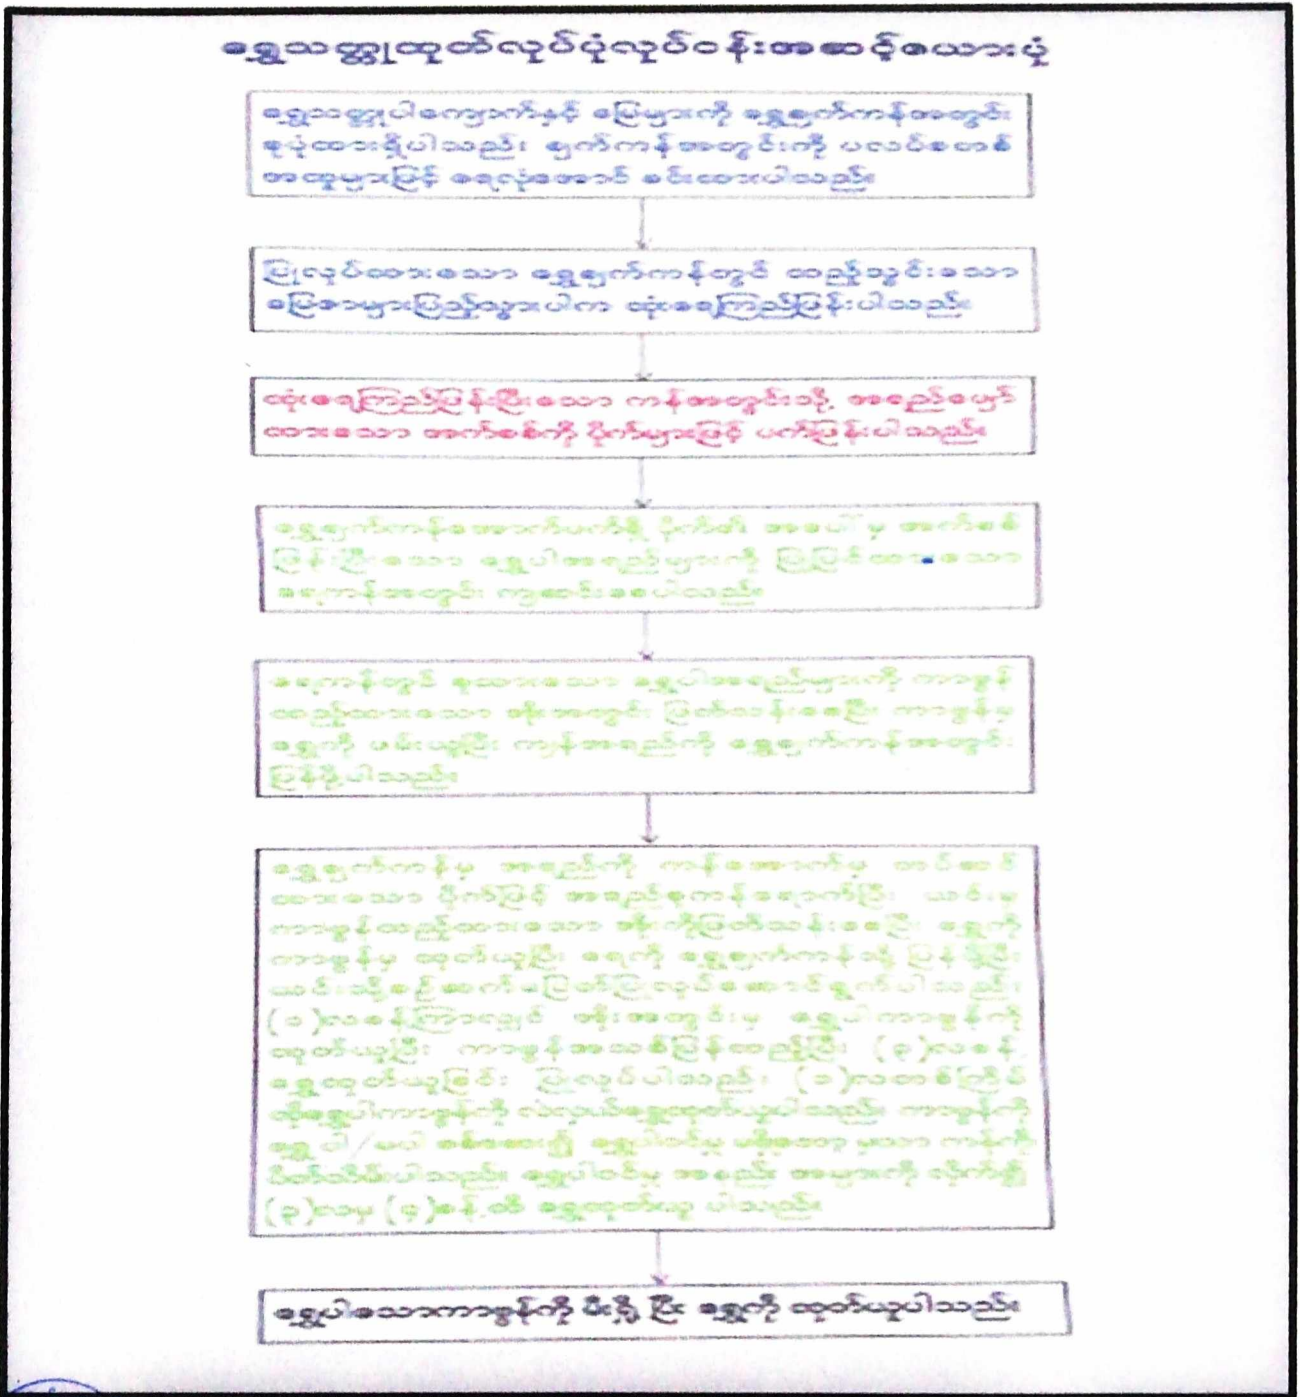 ရွှေသတ္တုထုတ်လုပ်ပုံလုပ်ငန်းအဆင့်ဇယားပုံ
ရွှေသတ္တုပါကျောက်နှင့် မြေများကို ရွှေချက်ကန်အတွင်း
စုပုံထားရှိပါသည်။ ချက်ကန်အတွင်းကို ပလပ်စတစ်
အထူများဖြင့် ရေလုံအောင် ခင်းထားပါသည်။
ပြုလုပ်ထားသော ရွှေချက်ကန်တွင် ထည့်သွင်းသော
မြေစာများပြည့်သွားပါက ထုံးရေကြည်ဖြန်းပါသည်။
ထုံးရေကြည်ဖြန်းပြီးသော ကန်အတွင်းသို့ အရည်ဖျော်
ထားသော အက်စစ်ကို ပိုက်များဖြင့် ပက်ဖြန်းပါသည်။
ရွှေချက်ကန်အောက်ဘက်ရှိ ပိုက်၏ အပေါ်မှ အက်စစ်
ဖြန်းပြီးသော ရွှေပါအရည်များကို ပြုပြင်ထားသော
ရေကန်အတွင်း ကျဆင်းစေပါသည်။
ရေကန်တွင် စုထားသော ရွှေပါအရည်များကို ကာဗွန်
ထည့်ထားသော အိုးအတွင်း ဖြတ်သန်းစေပြီး ကာဗွန်မှ
ရွှေကို ဖမ်းယူပြီး ကျန်အရည်ကို ရွှေချက်ကန်အတွင်း
ပြန်ပို့ပါသည်။
ရွှေချက်ကန်မှ အရည်ကို ကန်အောက်မှ တပ်ဆင်
ထားသော ပိုက်ဖြင့် အရည်စုကန်ရောက်ပြီး ယင်းမှ
ကာဗွန်ထည့်ထားသော အိုးကိုဖြတ်သန်းစေပြီး ရွှေကို
ကာဗွန်မှ ထုတ်ယူပြီး ရေကို ရွှေချက်ကန်သို့ ပြန်ပို့ပြီး
ယင်းသို့စဉ်ဆက်မပြတ်ပြုလုပ်ဆောင်ရွက်ပါသည်။
(၁)လခန့်ကြာလျှင် အိုးအတွင်းမှ ရွှေပါကာဗွန်ကို
ထုတ်ယူပြီး ကာဗွန်အသစ်ပြန်ထည့်ပြီး (၃)လခန့်
ရွှေထုတ်ယူခြင်း ပြုလုပ်ပါသည်။ (၁)လတစ်ကြိမ်
ထိုရွှေပါကာဗွန်ကို လဲလှယ်ရွှေထုတ်ယူပါသည်။ ကာဗွန်ကို
ရွှေ ပါ/မပါ စစ်ဆေး၍ ရွှေပါဝင်မှု မရှိတော့ မှသာ ကန်ကို
ပိတ်သိမ်းပါသည်။ ရွှေပါဝင်မှု အနည်း အများကို လိုက်၍
(၃)လမှ (၄)ခန့် ထိ ရွှေထုတ်ယူ ပါသည်။
ရွှေပါသောကာဗွန်ကို မီးရှို့ ပြီး ရွှေကို ထုတ်ယူပါသည်။